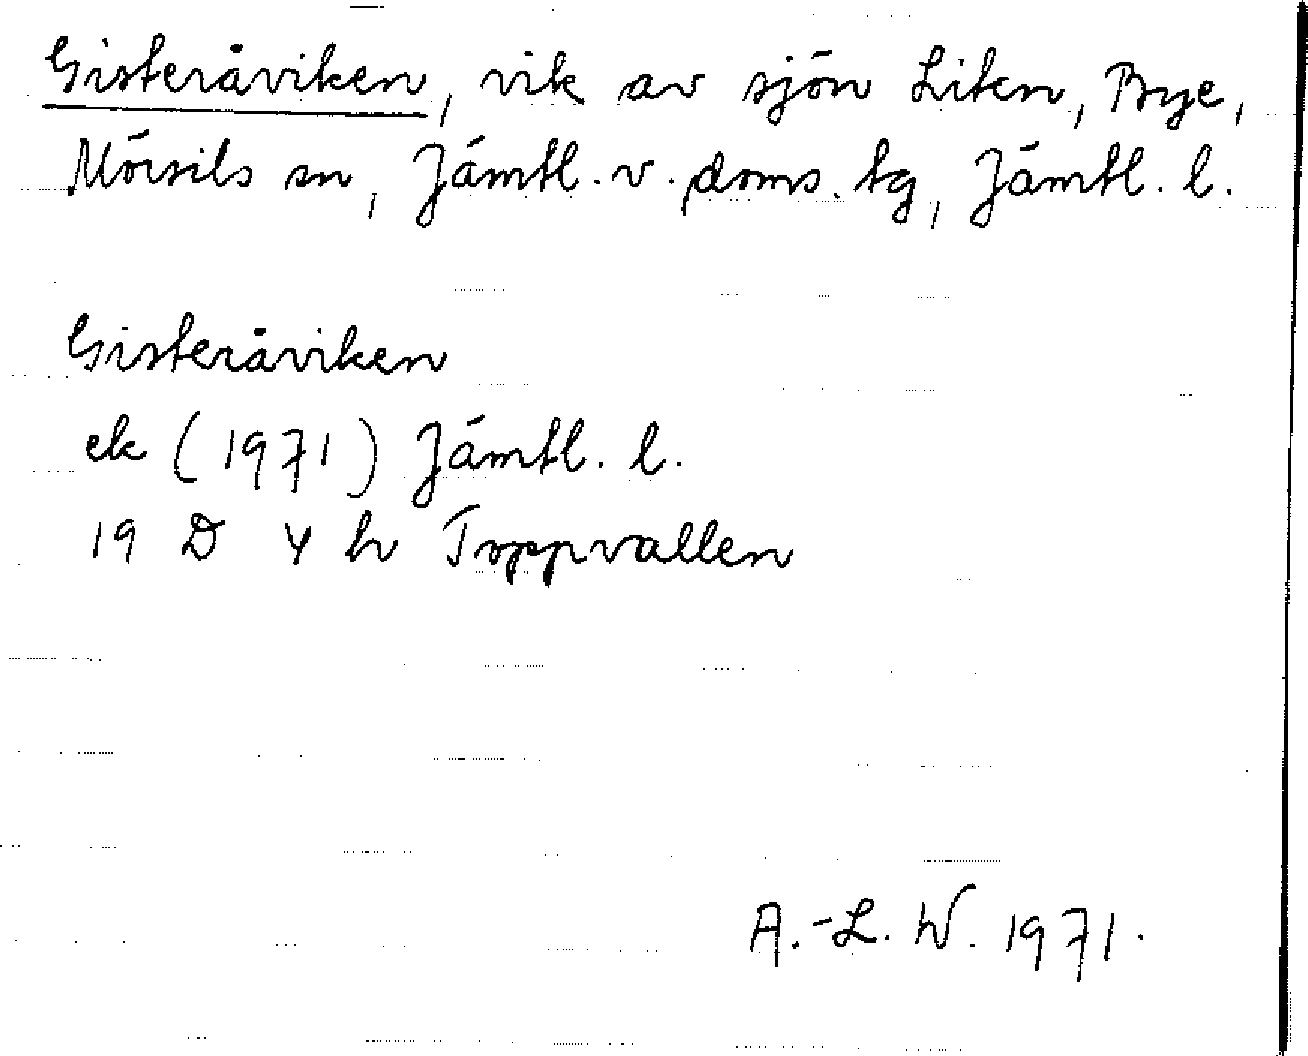 Gisteråviken, vik av sjön Liten, Bye,
Mörsils sn, Jämtl. v. doms. tg, Jämtl. l.
Gisteråviken
ek (1971) Jämtl. l.
19 D 4 h Toppvallen
A.-L. W. 1971.